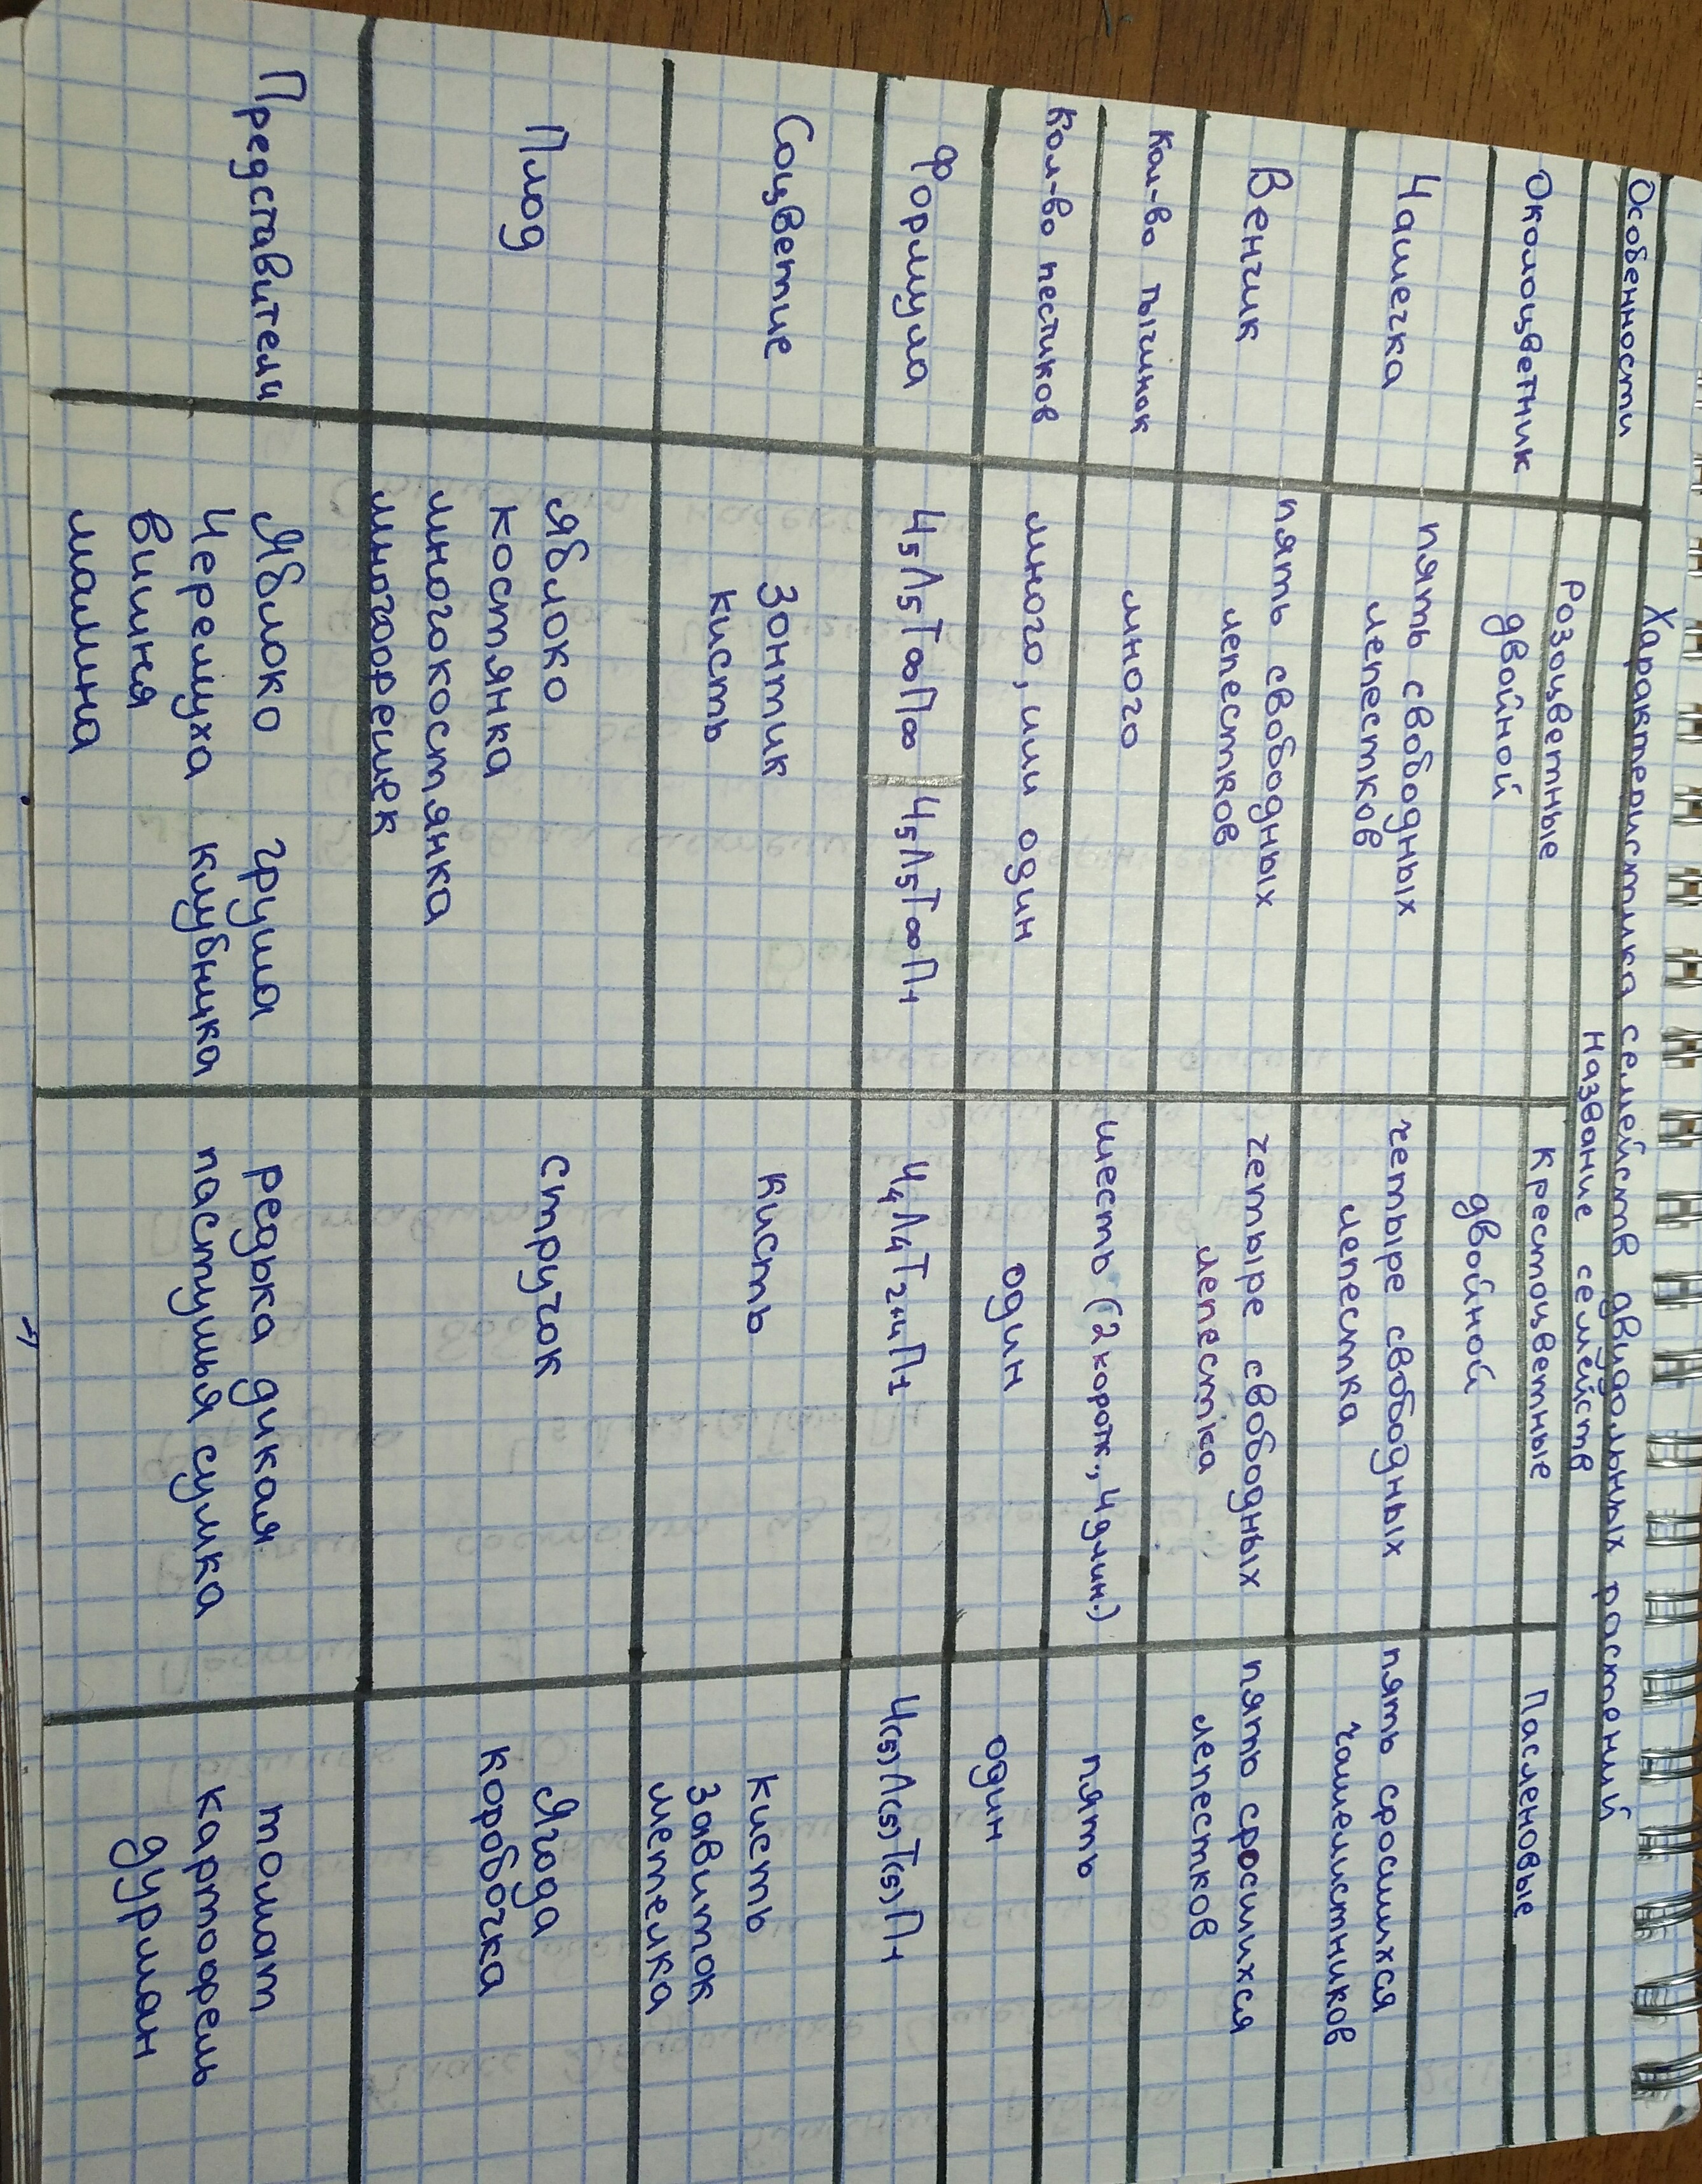 Характеристика семейств двудольных растений
Особенности
Название семейств
Розоцветные
Крестоцветные
Пасленовые
Околоцветник
двойной
двойной
Чашечка
пять свободных
лепестков
четыре свободных
лепестка
пять сросшихся
чашелистников
Венчик
пять свободных
лепестков
четыре свободных
лепестка
пять сросшихся
лепестков
Кол-во тычинок
много
шесть (2 коротк., 4 длин.)
пять
Кол-во пестиков
много, или один
один
один
Формула
Ч5Л5Т∞П∞
Ч5Л5Т∞П1
Ч4Л4Т2+4П1
Ч(5)Л(5)Т(5)П1
Соцветие
Зонтик
кисть
кисть
кисть
завиток
метелка
Плод
яблоко
костянка
многокостянка
многорешек
стручок
Ягода
коробочка
Представители
Яблоко груша
Черемуха клубника
вишня
малина
редька дикая
пастушья сумка
томат
картофель
дурман